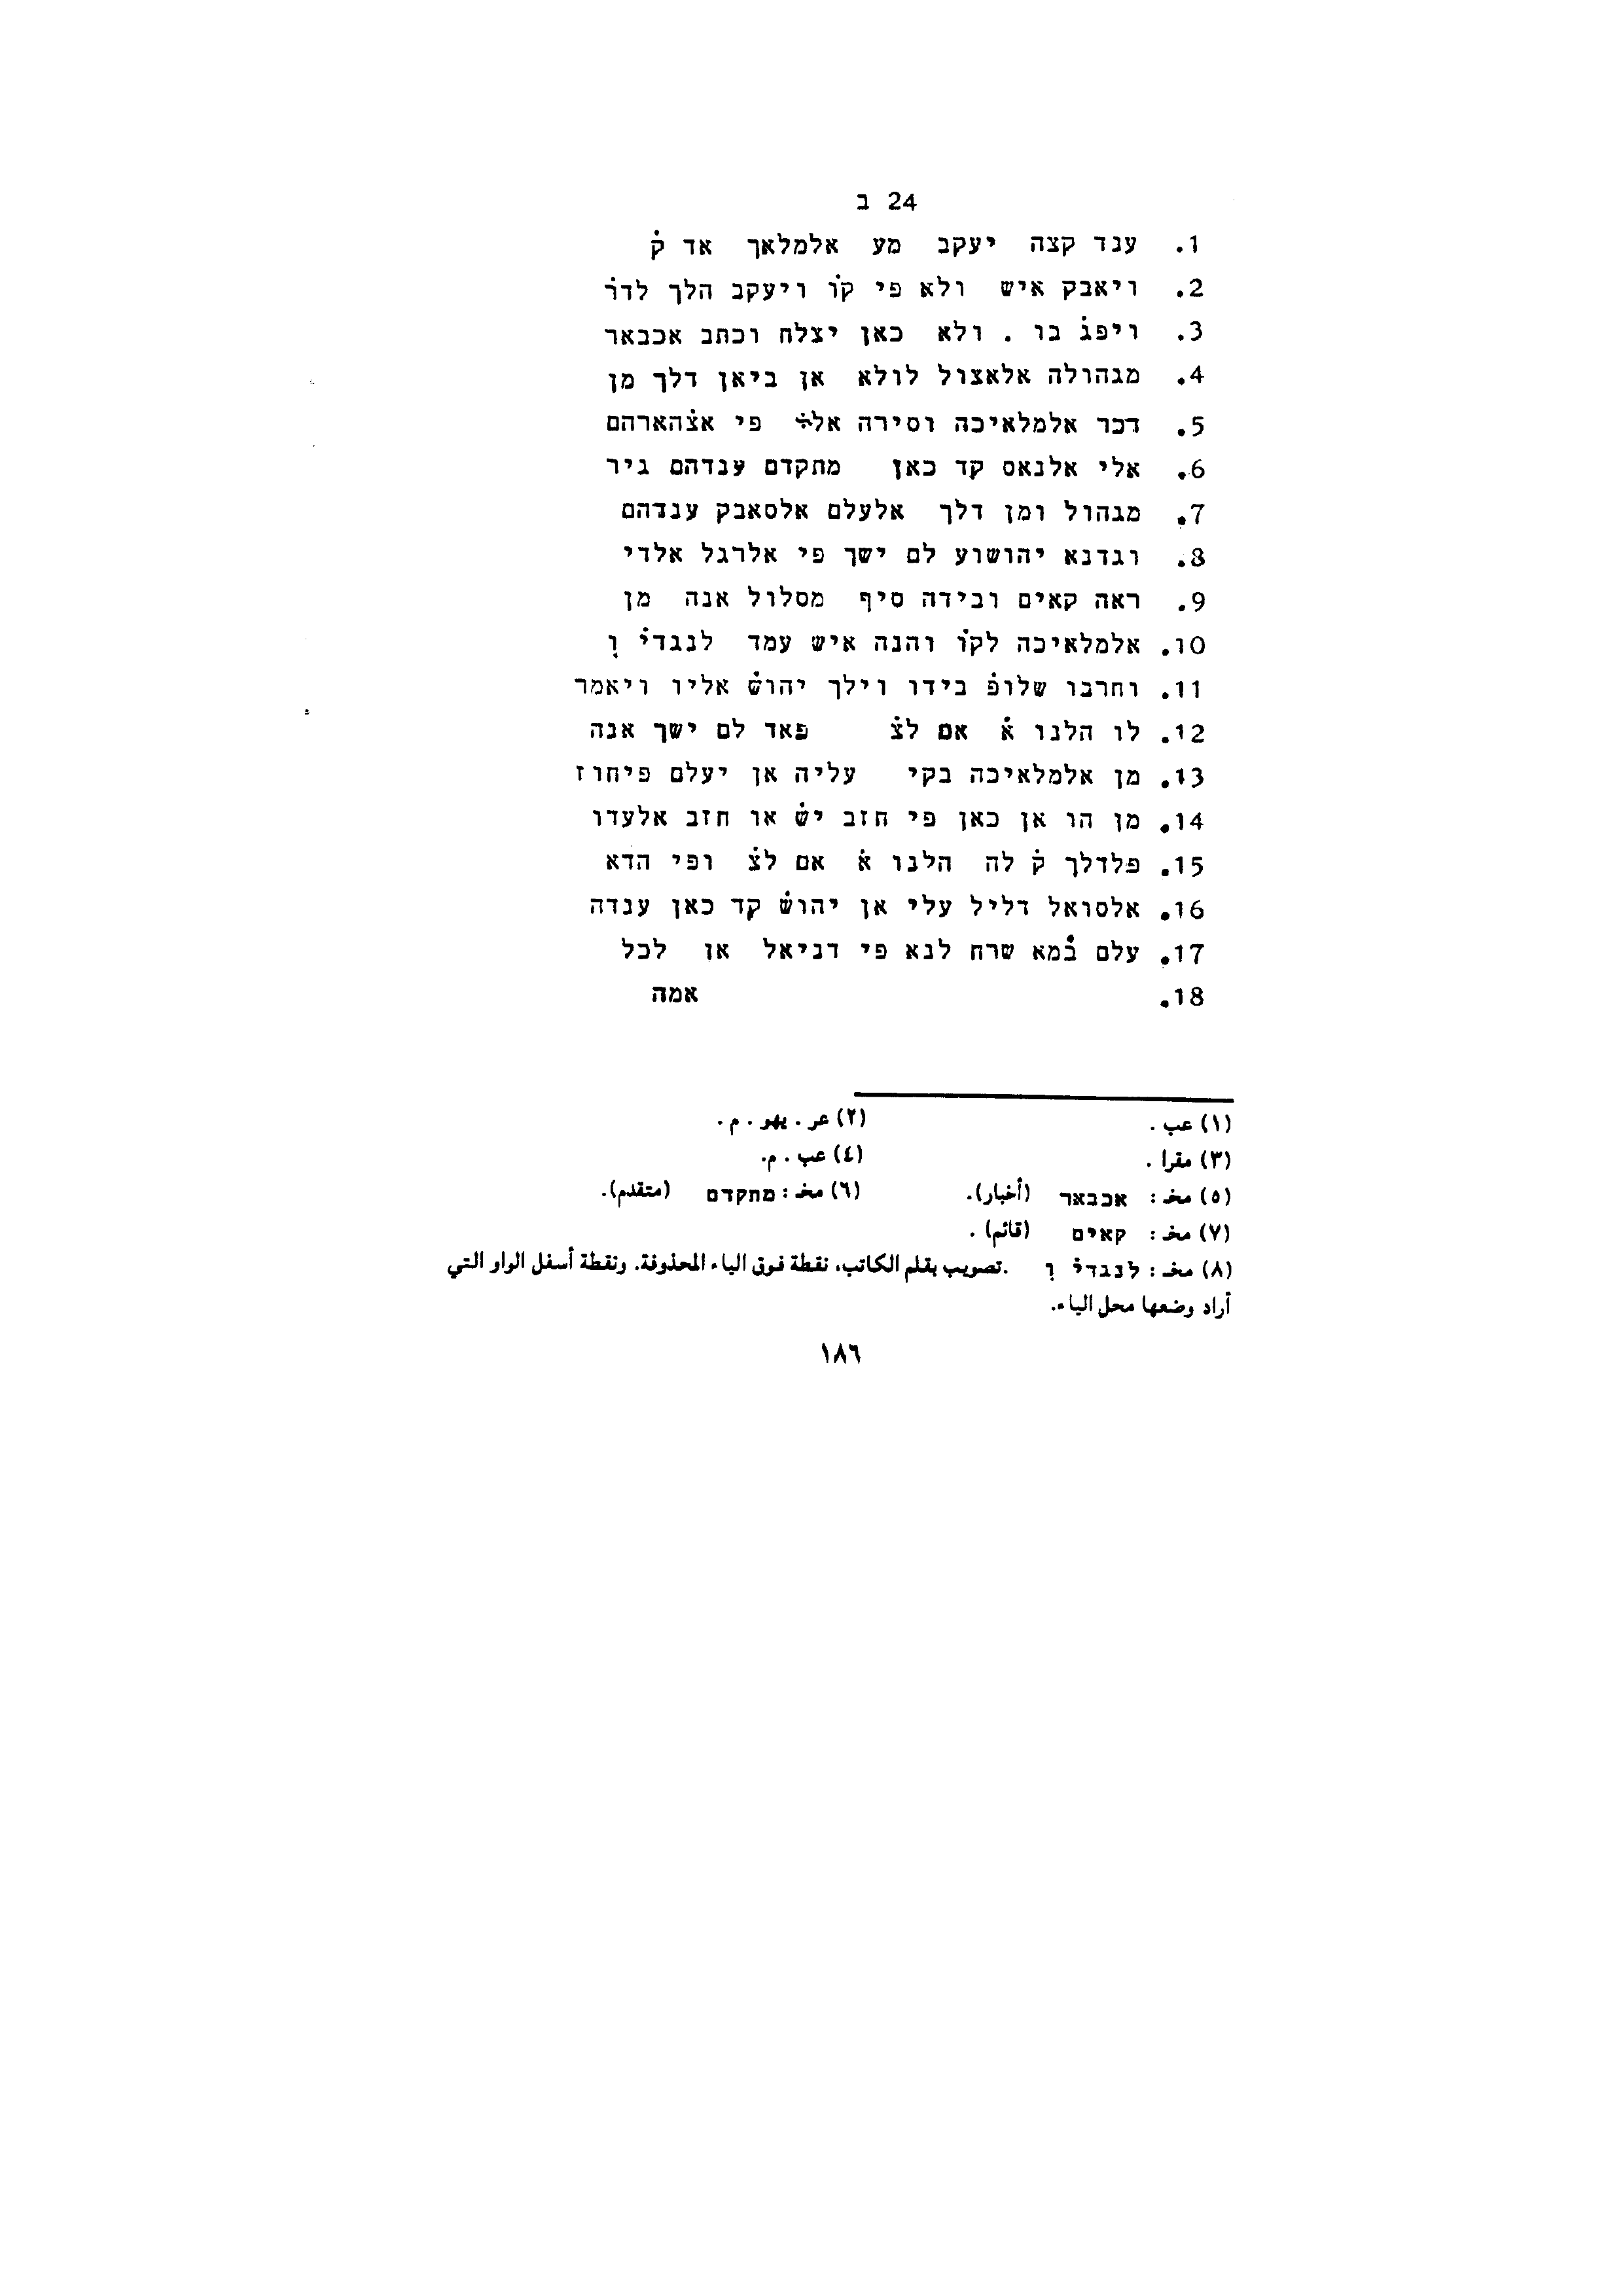 24 ב
1. ענד קצה יעקב מע אלמלאך אד ק̇
2. ויאבק איש ולא פי קו̇ ויעקב הלך לדר̇
3. ויפג̇ בו . ולא כאן יצלח וכתב אכבאר
4. מגהולה אלאצול לולא אן ביאן דלך מן
5. דכר אלמלאיכה וסירה פי אצ̇הארהם
6. אלי אלנאס קד כאן מתקדם ענדהם גיר
7. מגהול ומן דלך אלעלם אלסאבק ענדהם
8. וגדנא יהושוע לם ישך פי אלרגל אלדי
9. ראה קאים ובידה סיף מסלול אנה מן
10. אלמלאיכה לקו̇ והנה איש עמד לנגדי̇ ו̣
11. וחרבו שלופ̇ בידו וילך יהוש̇ אליו ויאמר
12. לו הלנו א̇ אם לצ̇ פאד לם ישך אנה
13. מן אלמלאיכה בקי עליה אן יעלם פיחוז
14. מן הו אן כאן פי חזב יש̇ או חזב אלעדו
15. פלדלך ק̇ לה הלנו א̇ אם לצ̇ ופי הדא
16. אלסואל דליל עלי אן יהוש̇ קד כאן ענדה
17. עלם ב̇מא שרח לנא פי דניאל אן לכל
18. אמה
(١) عب . (٢) عر . يهو . م .
(٣) مقرا . (٤) عب . م.
(٥) مخـ : אכבאר (أخبار). (٦) مخـ : מתקדם (متقدم).
(٧) مخـ : קאים (قائم) .
(٨) مخـ : לנגדי̇ ו̣ .تصويب بقلم الكاتب، نقطة فوق الياء المحذوفة. ونقطة أسفل الواو التي
أراد وضعها محل الياء.
١٨٦